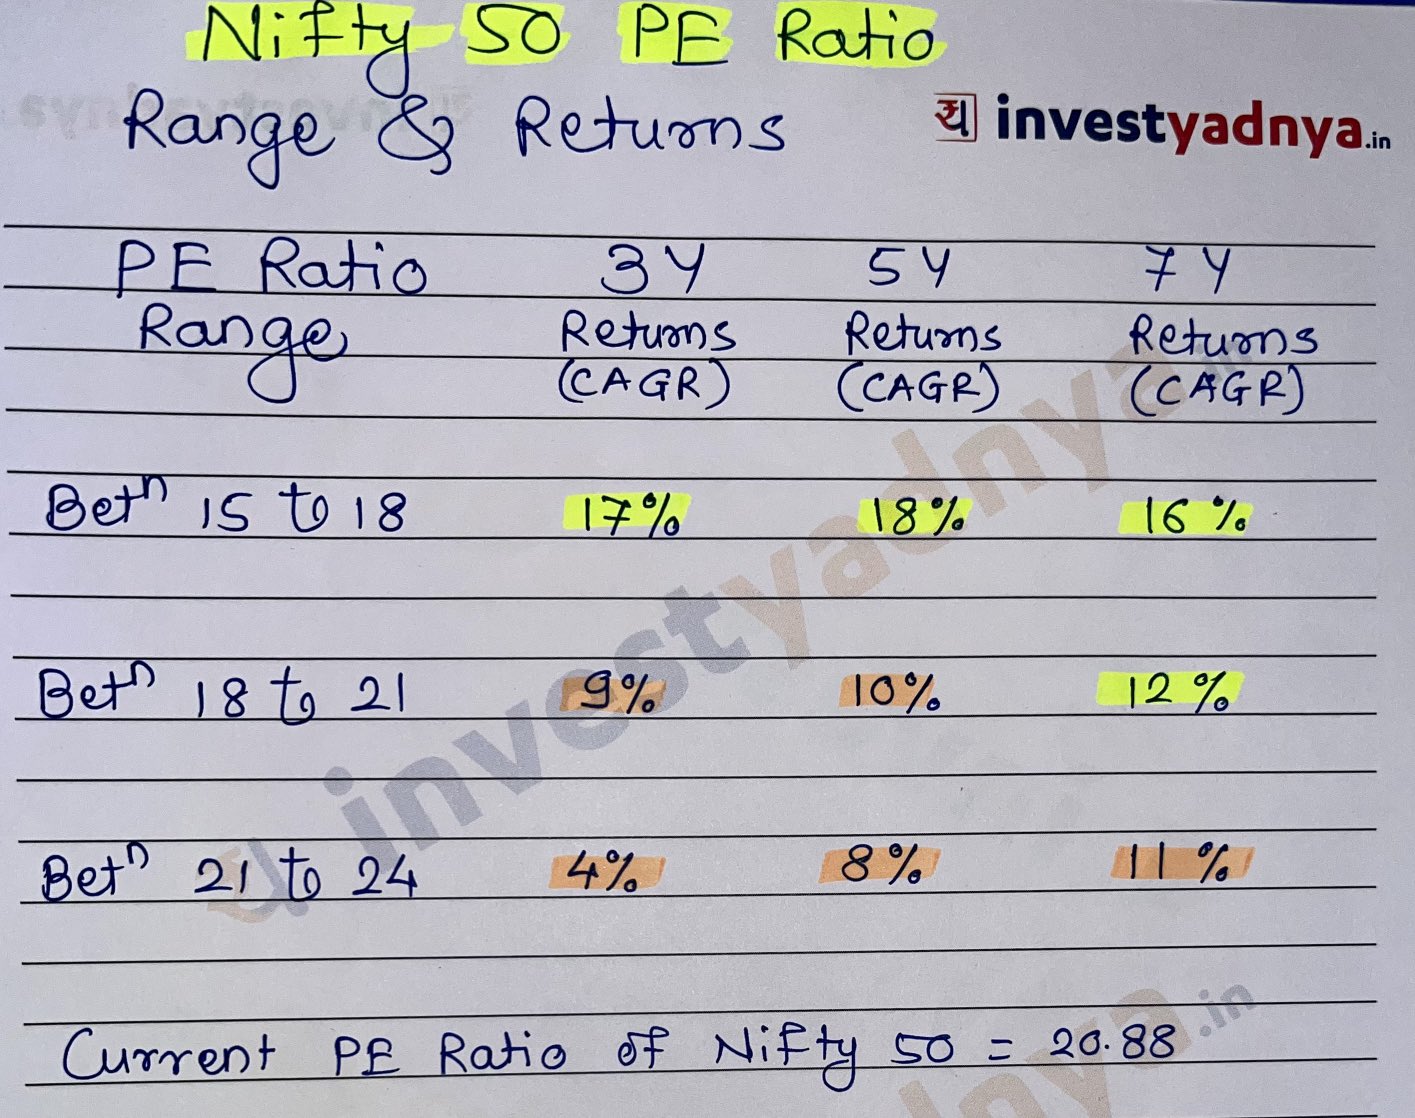 Nifty 50 PE Ratio
Range & Returns
य investyadnya.in
PE Ratio 3Y 5Y 7Y
Range Returns Returns Returns
(CAGR) (CAGR) (CAGR)
Betⁿ 15 to 18 17% 18% 16%
Betⁿ 18 to 21 9% 10% 12%
Betⁿ 21 to 24 4% 8% 11%
Current PE Ratio of Nifty 50 = 20.88
investyadnya.in
nya.in